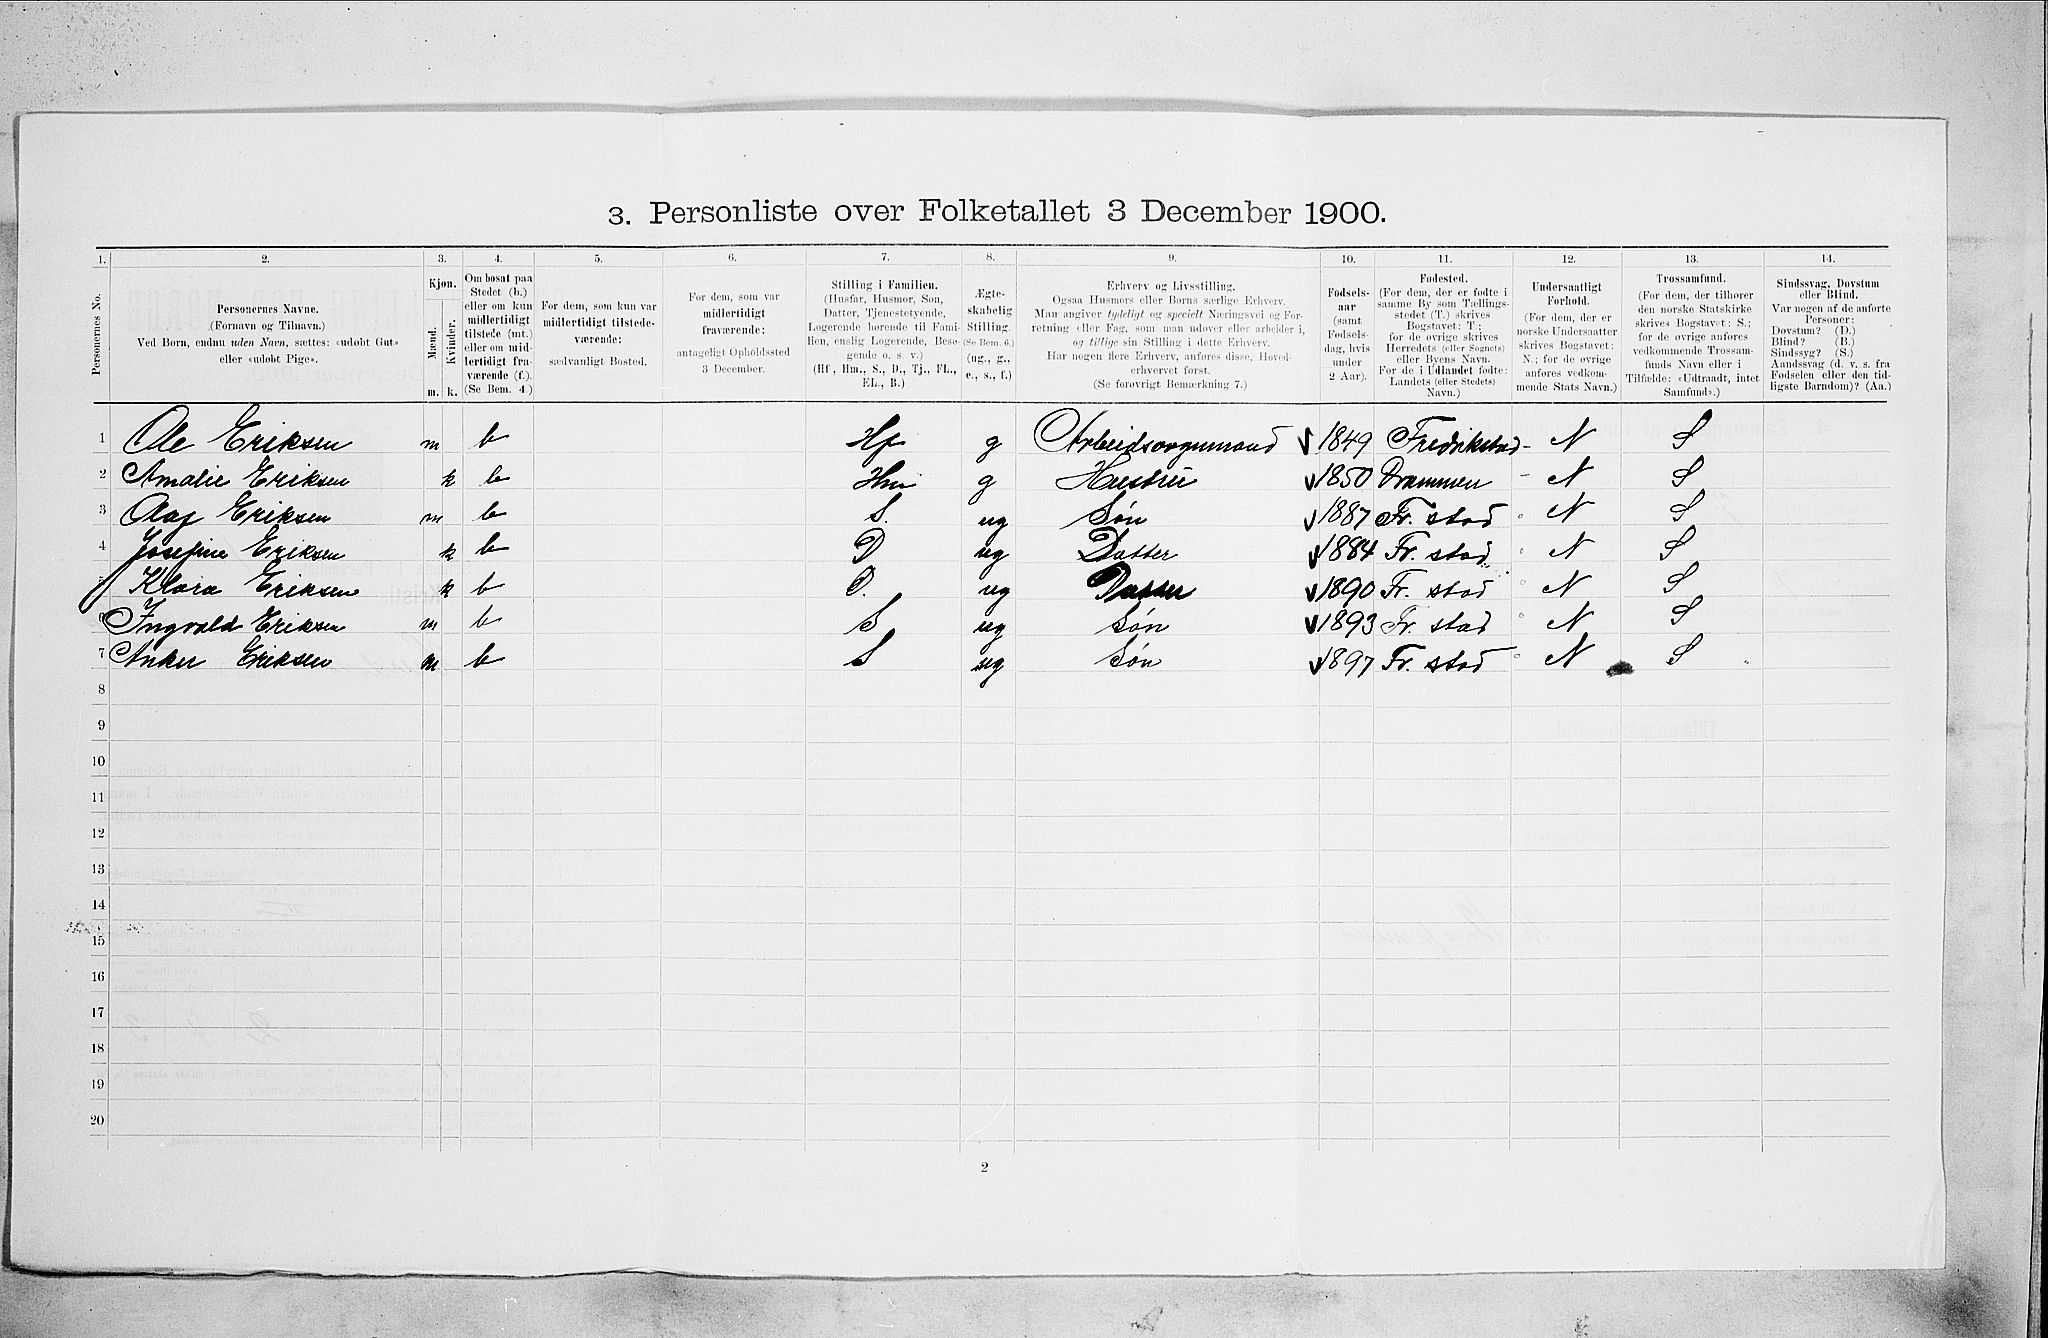 3. Personliste over Folketallet 3 December 1900.
1. 2. 3. 4. 5. 6. 7. 8. 9. 10. 11. 12. 13. 14.
Personernes No.
Personernes Navne.
(Fornavn og Tilnavn.)
Ved Børn, endnu uden Navn, sættes: «udøbt Gut»
eller «udøbt Pige».
Kjøn.
Mænd. Kvinder.
m. k.
Om bosat paa
Stedet (b.)
eller om kun
midlertidigt
tilstede (mt.)
eller om mid-
lertidigt fra-
værende (f.).
(Se Bem. 4.)
For dem, som kun var
midlertidigt tilstede-
værende:
sædvanligt Bosted.
For dem, som var
midlertidigt
fraværende:
antageligt Opholdssted
3 December.
Stilling i Familien.
(Husfar, Husmor, Søn,
Datter, Tjenestetyende,
Logerende hørende til Fami-
lien, enslig Logerende, Besø-
gende o. s. v.)
(Hf., Hm., S., D., Tj., FL.,
EL., B.)
Ægte-
skabelig
Stilling.
(Se Bem. 6.)
(ug., g.,
e., s., f.)
Erhverv og Livsstilling.
Ogsaa Husmors eller Børns særlige Erhverv.
Man angiver tydeligt og specielt Næringsvei og For-
retning eller Fag, som man udøver eller arbeider i,
og tillige sin Stilling i dette Erhverv.
Har nogen flere Erhverv, anføres disse, Hoved-
erhvervet først.
(Se forøvrigt Bemærkning 7.)
Fødsels-
aar
(samt
Fødsels-
dag, hvis
under
2 Aar).
Fødested.
(For dem, der er fødte i
samme By som Tællings-
stedet (T.) skrives
Bogstavet: T;
for de øvrige skrives
Herredets (eller Sognets)
eller Byens Navn.
For de i Udlandet fødte:
Landets (eller Stedets)
Navn.)
Undersaatligt
Forhold.
(For dem, der er
norske Undersaatter
skrives Bogstavet:
N.; for de øvrige
anføres vedkom-
mende Stats Navn.)
Trossamfund.
(For dem, der tilhører
den norske Statskirke
skrives Bogstavet: S.;
for de øvrige anføres
vedkommende Trossam-
funds Navn eller i
Tilfælde: «Udtraadt, intet
Samfund».)
Sindssvag, Døvstum
eller Blind.
Var nogen af de anførte
Personer:
Døvstum? (D.)
Blind? (B.)
Sindssyg? (S.)
Aandssvag (d. v. s. fra
Fødselen eller den tid-
ligste Barndom)? (Aa.)
1 Ole Eriksen m b Hf g 1849 Fredrikstad N S
2 Amalie Eriksen k b Hm g Hustru 1850 Drammen N S
3 Eriksen m b S. ug Søn 1887 Fr. stad N S
4 Josefine Eriksen k b D ug Datter 1884 Fr. stad N S
Klara Eriksen k b D. ug Datter 1890 Fr. stad N S
6 Ingvald Eriksen m b S ug Søn 1893 Fr. stad N S
7 Anker Eriksen m b S ug Søn 1897 Fr. stad N S
8
9
10
11
12
13
14
15
16
17
18
19
20
2